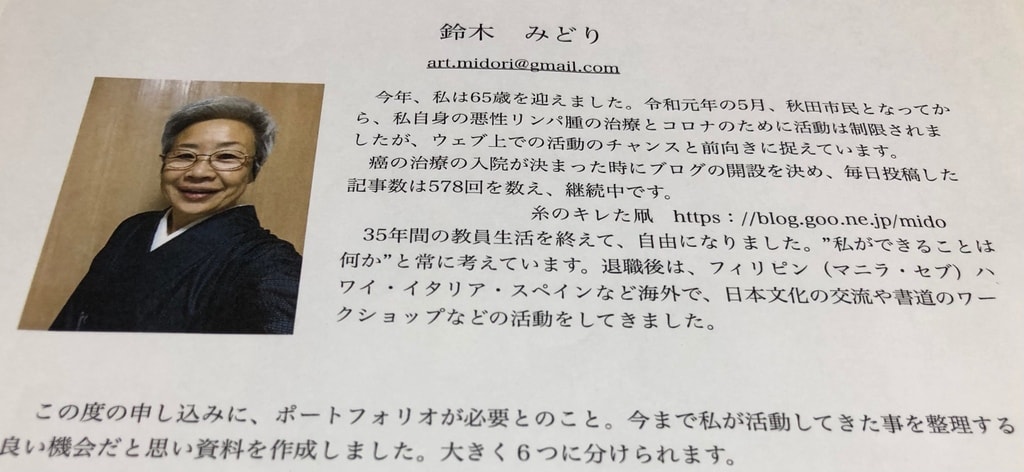 鈴木　みどり
art.midori@gmail.com
今年、私は65歳を迎えました。令和元年の5月、秋田市民となってか
ら、私自身の悪性リンパ腫の治療とコロナのために活動は制限されま
したが、ウェブ上での活動のチャンスと前向きに捉えています。
癌の治療の入院が決まった時にブログの開設を決め、毎日投稿した
記事数は578回を数え、継続中です。
糸のキレた凧　https：//blog.goo.ne.jp/mido
35年間の教員生活を終えて、自由になりました。”私ができることは
何か”と常に考えています。退職後は、フィリピン（マニラ・セブ）ハ
ワイ・イタリア・スペインなど海外で、日本文化の交流や書道のワー
クショップなどの活動をしてきました。
この度の申し込みに、ポートフォリオが必要とのこと。今まで私が活動してきた事を整理する
良い機会だと思い資料を作成しました。大きく６つに分けられます。